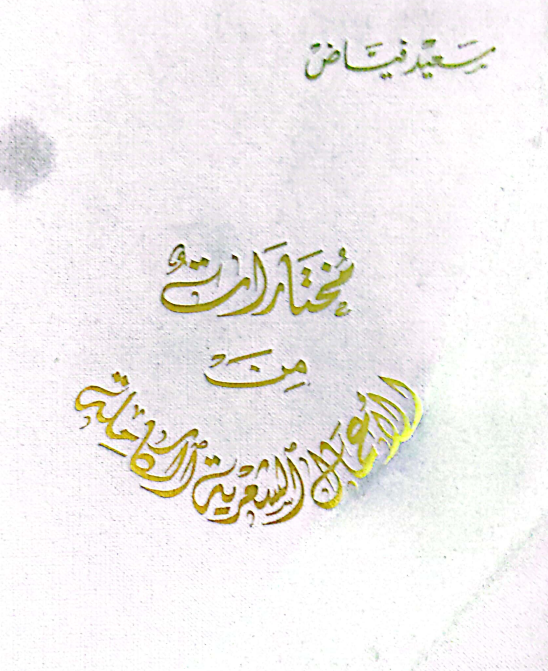 سَعيْد فيَّاضْ
مُختَارَاتٌ
مِنَ
الأعمال الشعرية الكاملة